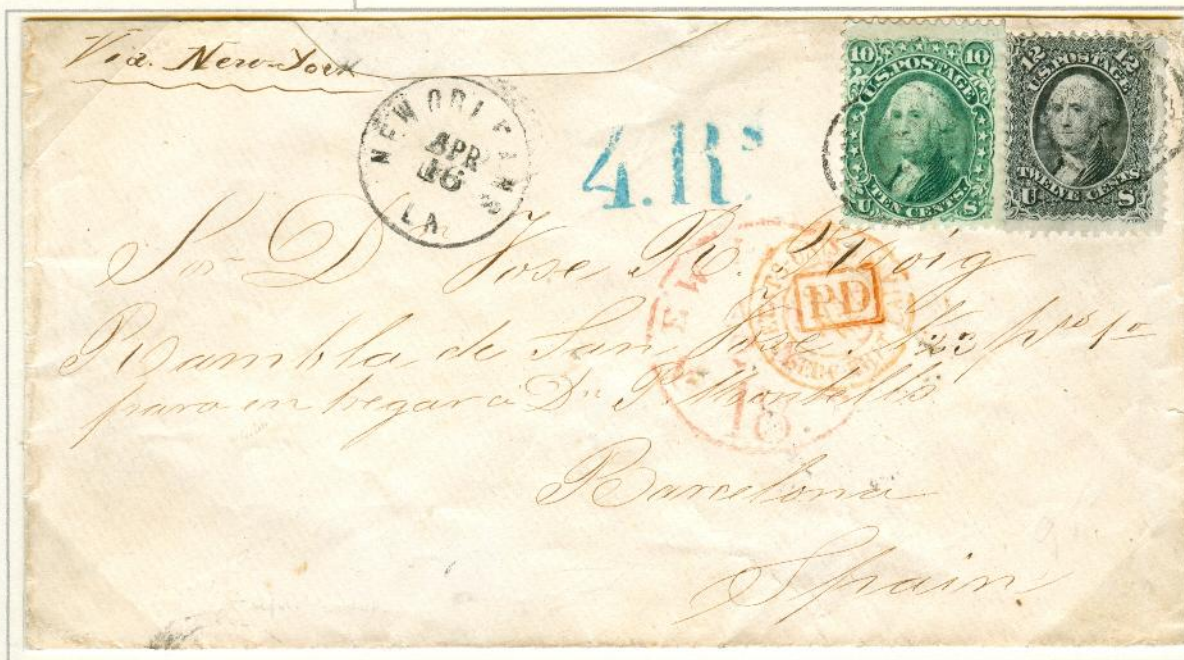 Via. New-York
NEW ORLEANS
APR
16
LA.
4.Rs.
10 10
U.S. POSTAGE
TEN CENTS.
U S
12 12
U.S. POSTAGE
TWELVE CENTS
U S
Sor D Jose R. Roig
NEW
PD
Rambla de San Jose N 23 po 1o
para entregar a Dn P.
18.
Barcelona
Spain